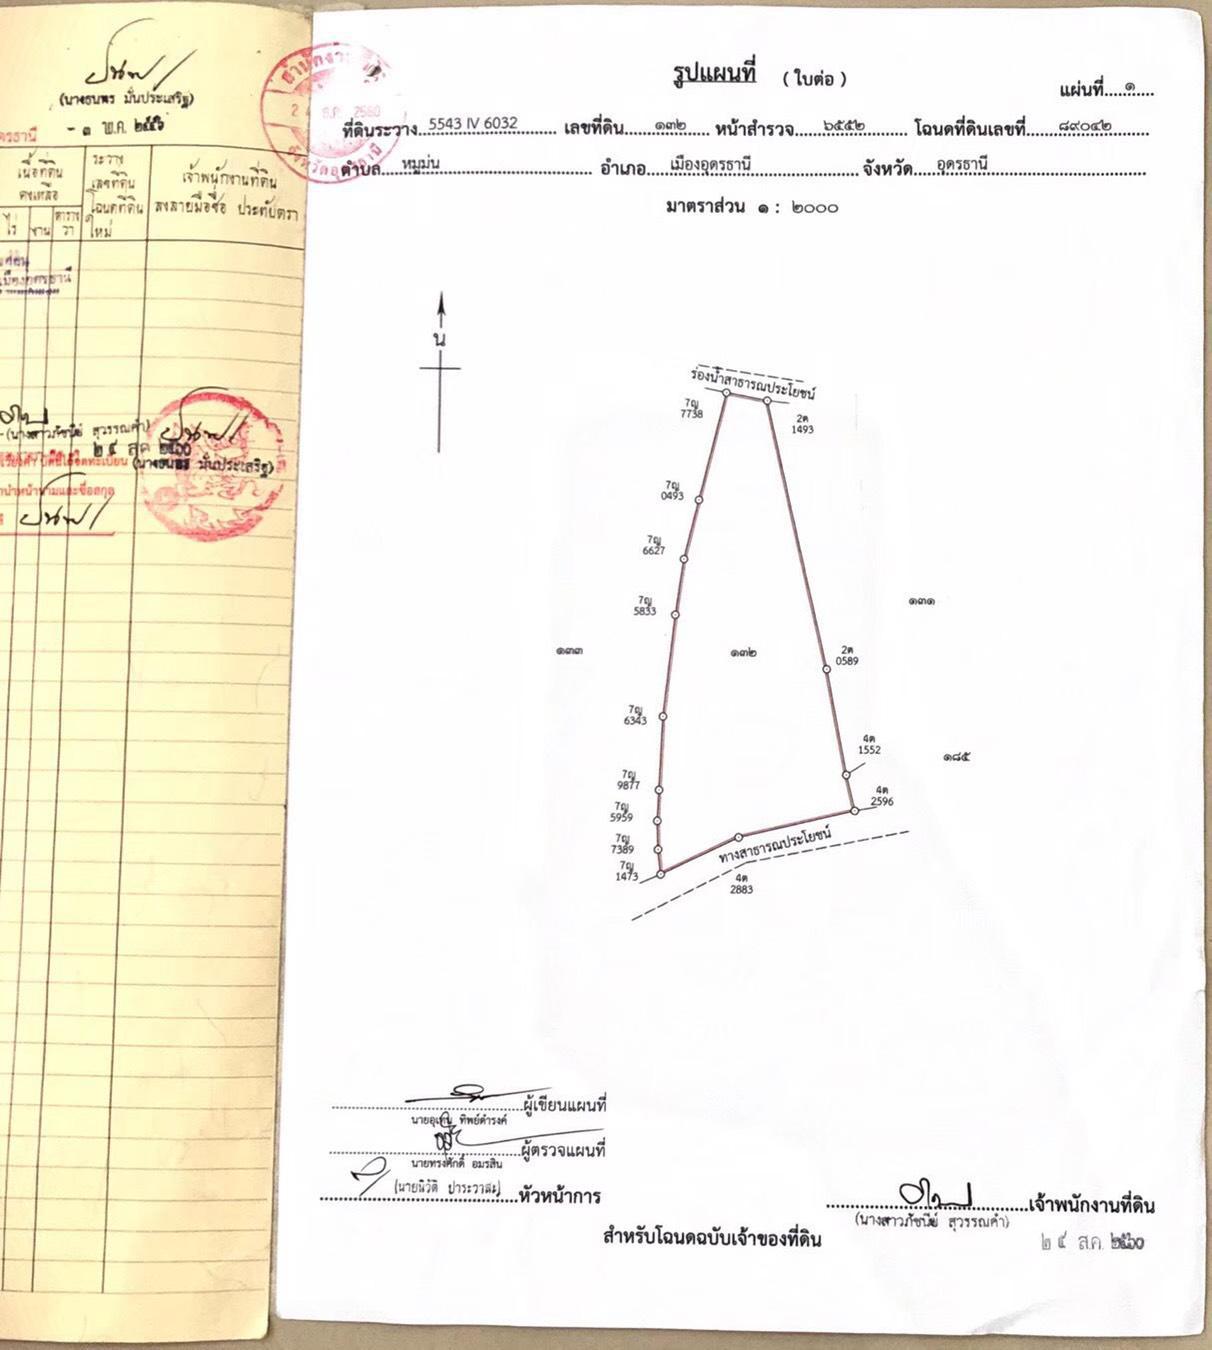 (นางธนพร มั่นประเสริฐ)
- ๓ พ.ค. ๒๕๕๖
เนื้อที่ดิน
คงเหลือ
ไร่ งาน ตาราง
วา
ระวาง
เลขที่ดิน
โฉนดที่ดิน
ใหม่
เจ้าพนักงานที่ดิน
ลงลายมือชื่อ ประทับตรา
เมืองอุดรธานี
(นางสาวภัชนีย์ สุวรรณคำ)
๒๔ ส.ค. ๒๕๖๐
(นางธนพร มั่นประเสริฐ)
รูปแผนที่ (ใบต่อ)
แผ่นที่ ๑
ที่ดินระวาง 5543 IV 6032 เลขที่ดิน ๑๓๒ หน้าสำรวจ ๖๕๕๒ โฉนดที่ดินเลขที่ ๘๙๐๔๒
ตำบล หมูม่น อำเภอ เมืองอุดรธานี จังหวัด อุดรธานี
มาตราส่วน ๑ : ๒๐๐๐
น
ร่องน้ำสาธารณประโยชน์
7ญ
7738
2ต
1493
7ญ
0493
7ญ
6627
7ญ
5833
๑๓๑
๑๓๓
๑๓๒
2ต
0589
7ญ
6343
4ต
1552
๑๘๕
7ญ
9877
4ต
2596
7ญ
5959
7ญ
7389
ทางสาธารณประโยชน์
7ญ
1473
4ต
2883
ผู้เขียนแผนที่
นายอุเทน ทิพย์ดำรงค์
ผู้ตรวจแผนที่
นายทรงศักดิ์ อมรสิน
(นายนิวัติ ปาระวาสะ) หัวหน้าการ
เจ้าพนักงานที่ดิน
(นางสาวภัชนีย์ สุวรรณคำ)
สำหรับโฉนดฉบับเจ้าของที่ดิน
๒๔ ส.ค. ๒๕๖๐